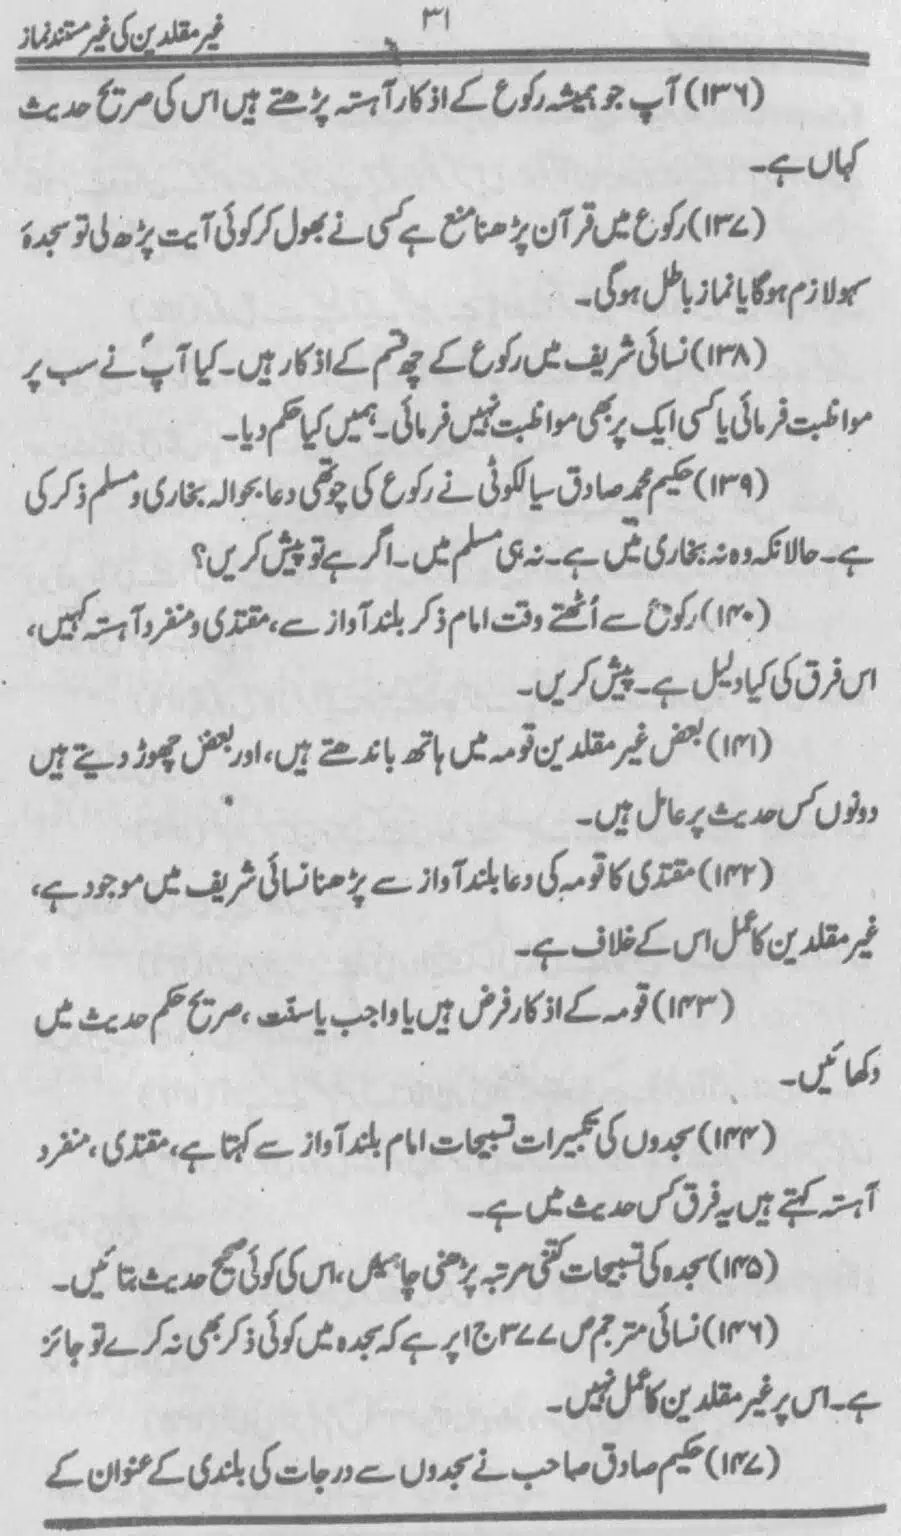 غیر مقلدین کی غیر مستند نماز
۳۱
(۱۳۶) آپ جو ہمیشہ رکوع کے اذکار آہستہ پڑھتے ہیں اس کی صریح حدیث
کہاں ہے۔
(۱۳۷) رکوع میں قرآن پڑھنا منع ہے کسی نے بھول کر کوئی آیت پڑھ لی تو سجدۂ
سہو لازم ہوگا یا نماز باطل ہوگی۔
(۱۳۸) نسائی شریف میں رکوع کے چھ قسم کے اذکار ہیں۔ کیا آپؐ نے سب پر
مواظبت فرمائی یا کسی ایک پر بھی مواظبت نہیں فرمائی۔ ہمیں کیا حکم دیا۔
(۱۳۹) حکیم محمد صادق سیالکوٹی نے رکوع کی چوتھی دعا بحوالہ بخاری و مسلم ذکر کی
ہے۔ حالانکہ وہ نہ بخاری میں ہے۔ نہ ہی مسلم میں۔ اگر ہے تو پیش کریں؟
(۱۴۰) رکوع سے اُٹھتے وقت امام ذکر بلند آواز سے، مقتدی و منفرد آہستہ کہیں،
اس فرق کی کیا دلیل ہے۔ پیش کریں۔
(۱۴۱) بعض غیر مقلدین قومہ میں ہاتھ باندھتے ہیں، اور بعض چھوڑ دیتے ہیں
دونوں کس حدیث پر عامل ہیں۔
(۱۴۲) مقتدی کا قومہ کی دعا بلند آواز سے پڑھنا نسائی شریف میں موجود ہے،
غیر مقلدین کا عمل اس کے خلاف ہے۔
(۱۴۳) قومہ کے اذکار فرض ہیں یا واجب یا سنّت، صریح حکم حدیث میں
دکھائیں۔
(۱۴۴) سجدوں کی تکبیرات تسبیحات امام بلند آواز سے کہتا ہے، مقتدی، منفرد
آہستہ کہتے ہیں یہ فرق کس حدیث میں ہے۔
(۱۴۵) سجدہ کی تسبیحات کتنی مرتبہ پڑھنی چاہئیں، اس کی کوئی صحیح حدیث بتائیں۔
(۱۴۶) نسائی مترجم ص ۳۷۷ ج ۱ پر ہے کہ سجدہ میں کوئی ذکر بھی نہ کرے تو جائز
ہے۔ اس پر غیر مقلدین کا عمل نہیں۔
(۱۴۷) حکیم صادق صاحب نے سجدوں سے درجات کی بلندی کے عنوان کے